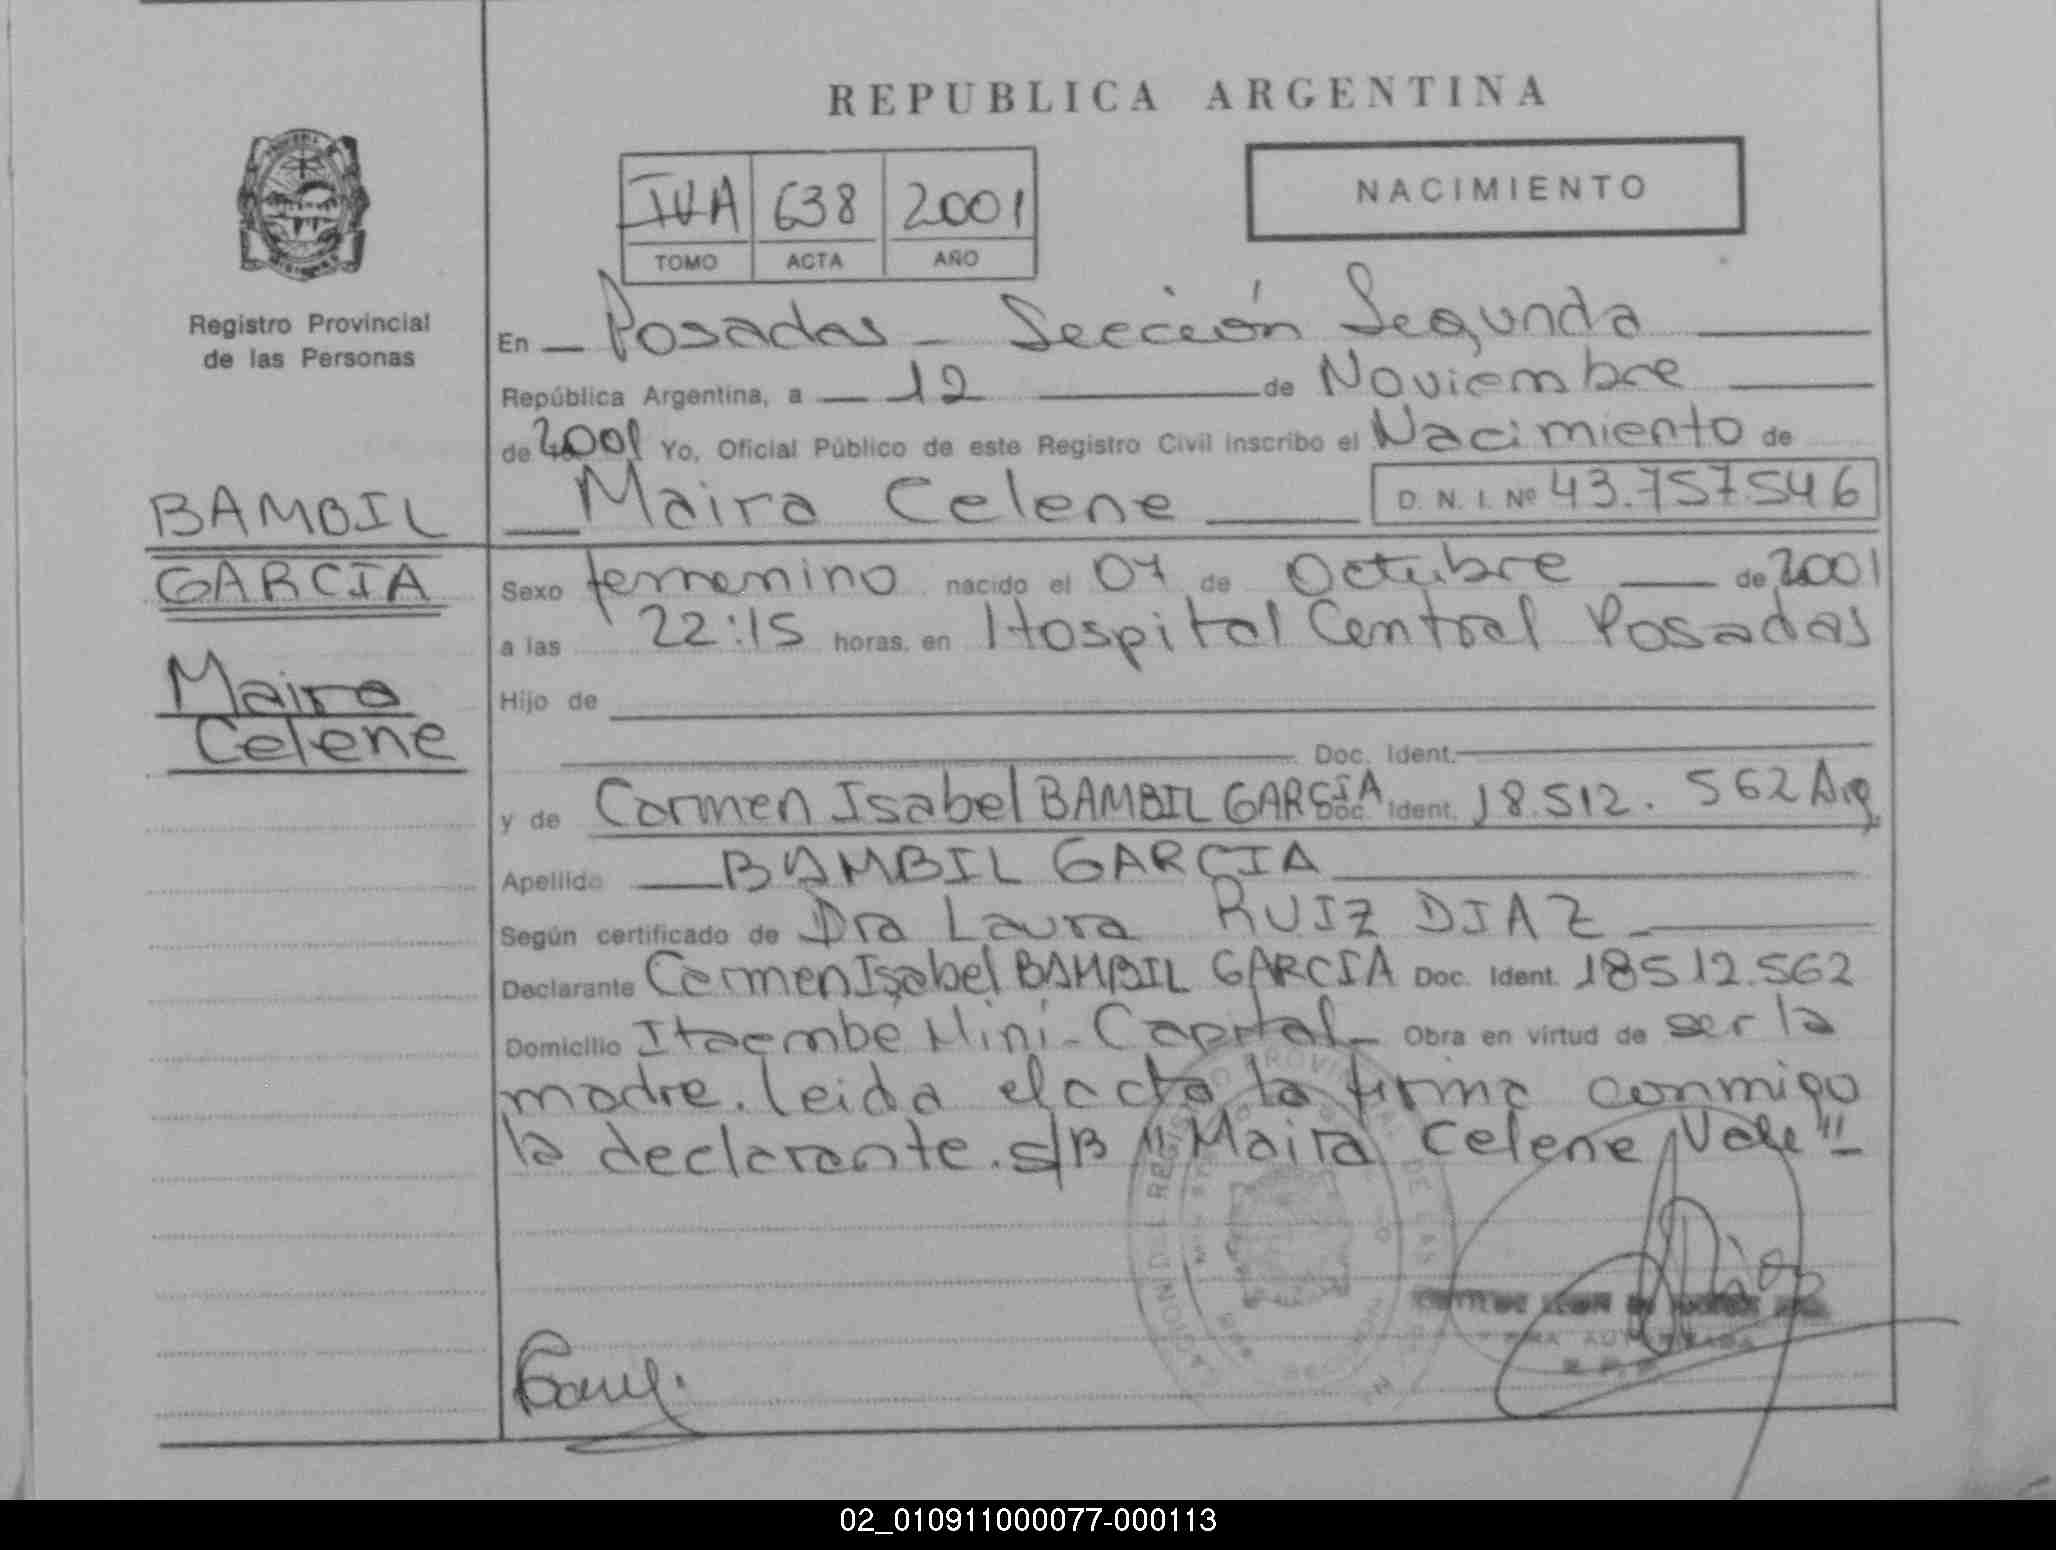 REPUBLICA ARGENTINA
IVA 638 2001
TOMO ACTA AÑO
NACIMIENTO
Registro Provincial
de las Personas
BAMBIL
GARCIA
Maira
Celene
En Posadas - Sección Segunda
República Argentina, a 12 de Noviembre
de 2001 Yo, Oficial Público de este Registro Civil inscribo el Nacimiento de
Maira Celene D. N. I. Nº 43.757.546
Sexo femenino nacido el 07 de Octubre de 2001
a las 22:15 horas, en Hospital Central Posadas
Hijo de
Doc. Ident.
y de Carmen Isabel BAMBIL GARCIA Doc. Ident. 18.512.562 Arg
Apellido BAMBIL GARCIA
Según certificado de Dra Laura RUIZ DIAZ
Declarante Carmen Isabel BAMBIL GARCIA Doc. Ident. 18512.562
Domicilio Itaembe Mini - Capital - Obra en virtud de ser la
madre. leida el acta la firma conmigo
la declarante. s/B "Maira Celene Vale"
02_010911000077-000113